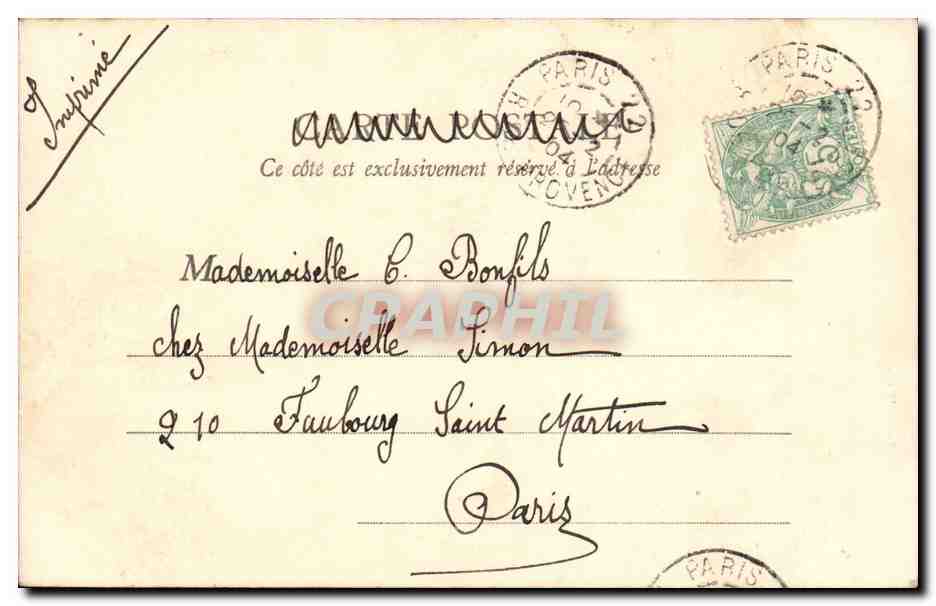 Imprimé
CARTE POSTALE
Ce côté est exclusivement réservé à l'adresse
PARIS 22
PARIS 22
04
04
5
Mademoiselle C. Bonfils
CPAPHIL
chez Mademoiselle Simon
210 Faubourg Saint Martin
Paris
PARIS